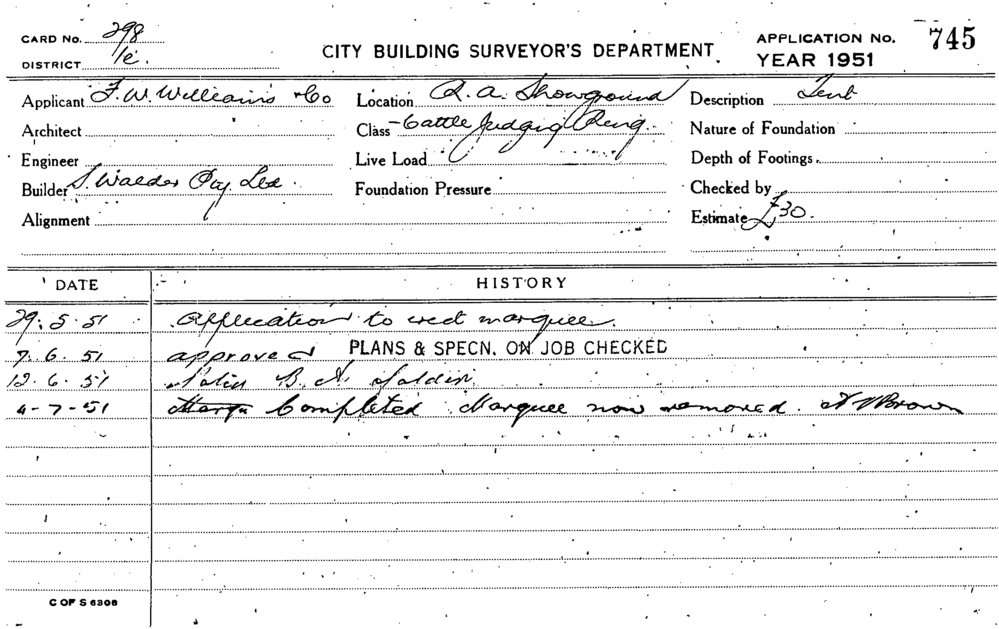 CARD No. 298
DISTRICT
CITY BUILDING SURVEYOR'S DEPARTMENT
APPLICATION No. 745
YEAR 1951
Applicant F. W. Williams & Co
Location R. A. Showground
Description Tent
Architect
Class Cattle Judging Ring
Nature of Foundation
Engineer
Live Load
Depth of Footings
Builder S. Walder Pty Ltd.
Foundation Pressure
Checked by
Alignment
Estimate £30.
DATE HISTORY
29. 5. 51 Application to erect marquee.
7. 6. 51 approved PLANS & SPECN. ON JOB CHECKED
12. 6. 51 Notice B. N.
4-7-51 Completed Marquee now removed. Brown
C OF S 6308